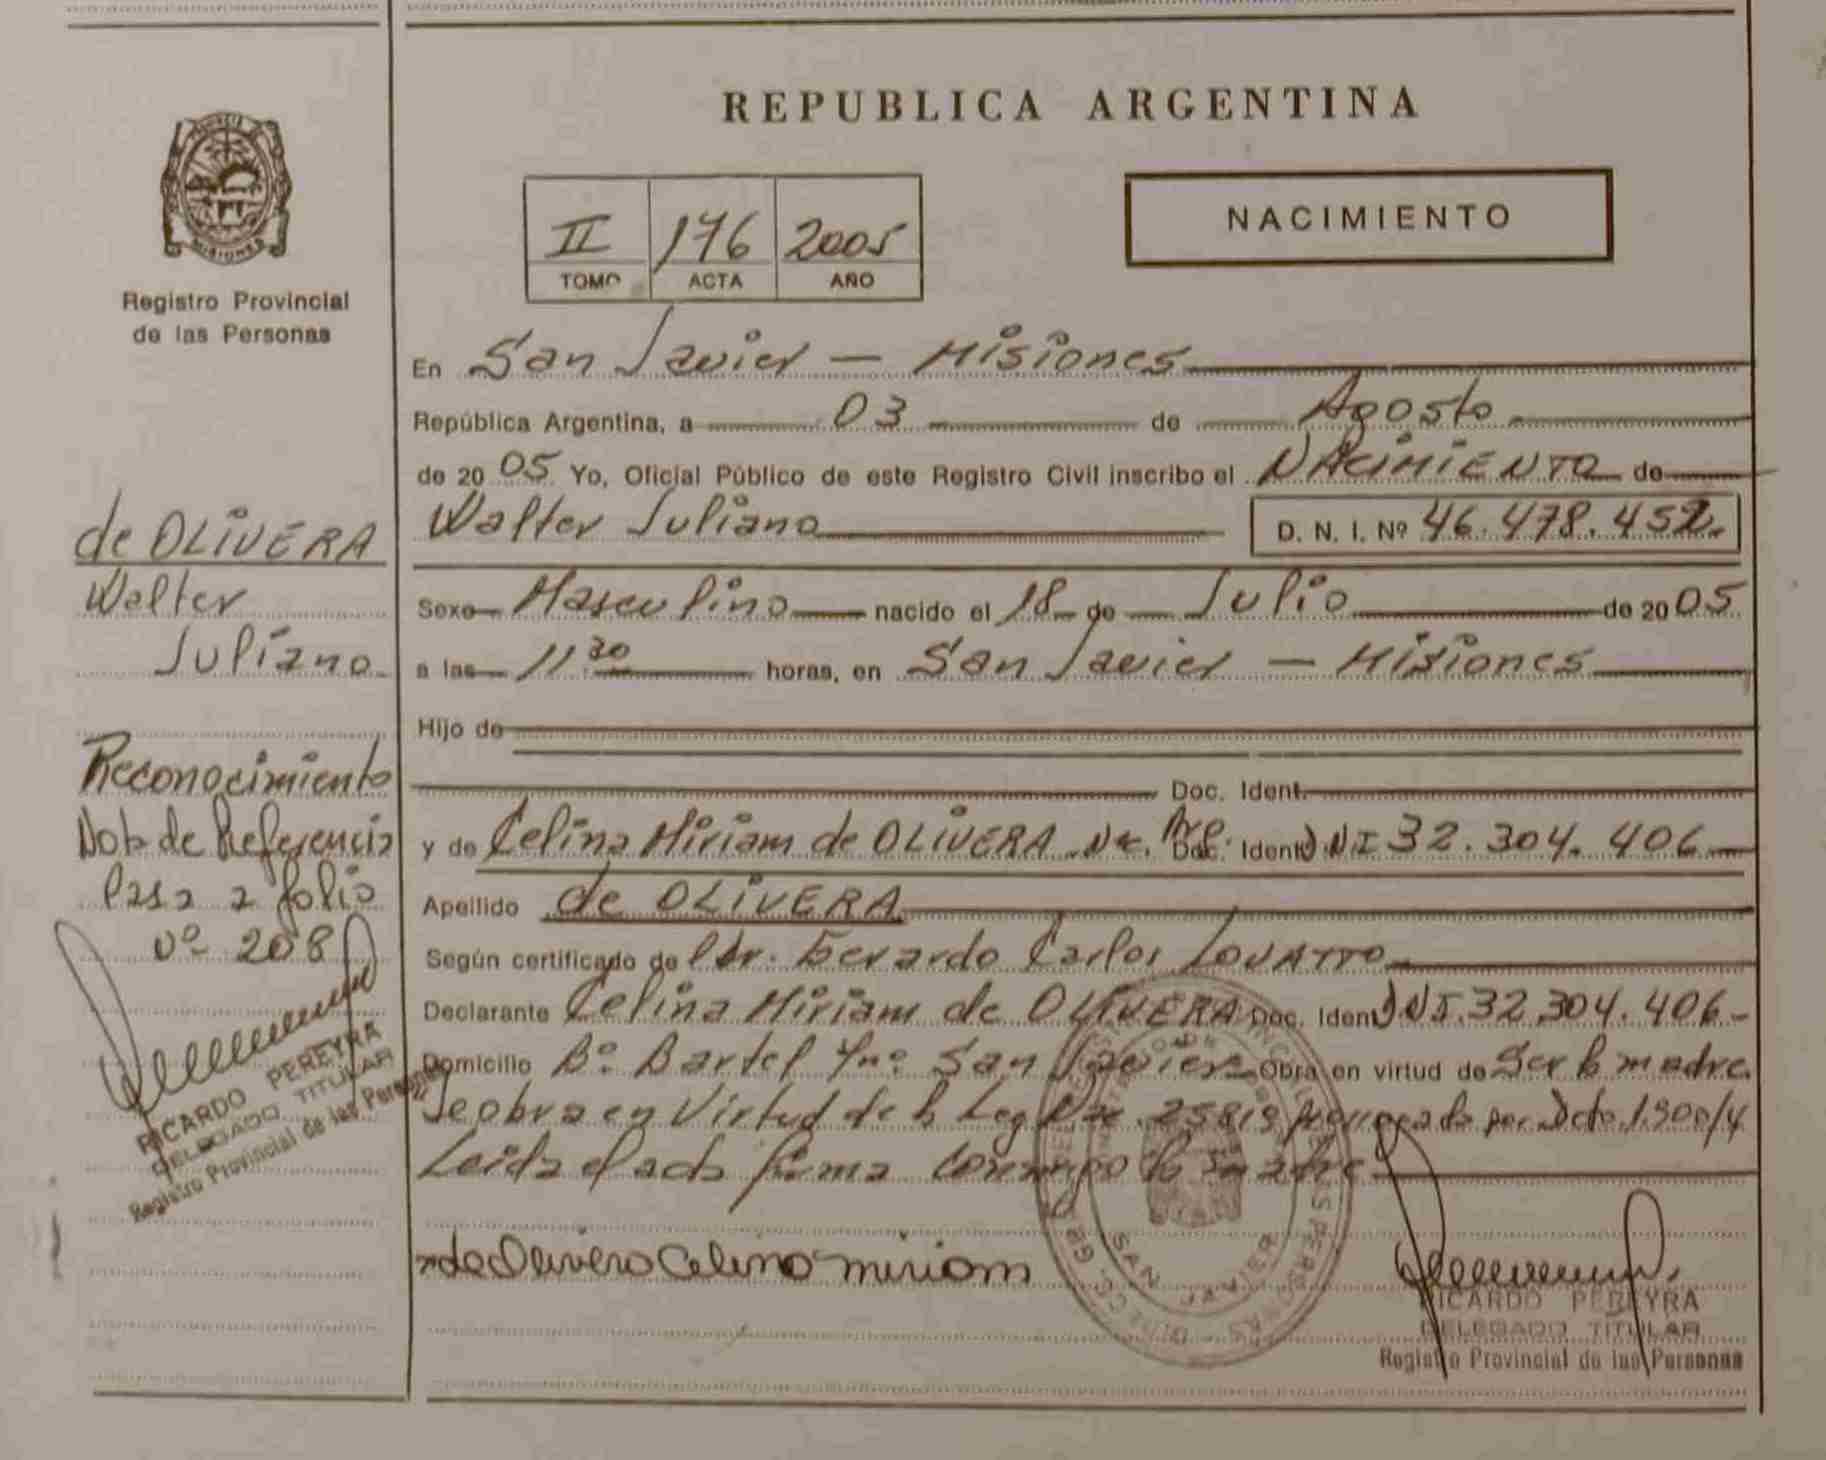 REPUBLICA ARGENTINA
NACIMIENTO
II 176 2005
TOMO ACTA AÑO
PROVINCIA DE
MISIONES
Registro Provincial
de las Personas
de OLIVERA
Walter
Juliano
Reconocimiento
Nota de Referencia
Pasa a folio
Nº 208
RICARDO PEREYRA
DELEGADO TITULAR
Registro Provincial de las Personas
En San Javier - Misiones
República Argentina, a 03 de Agosto
de 2005 Yo, Oficial Público de este Registro Civil inscribo el NACIMIENTO de
Walter Juliano D. N. I. Nº 46.478.452
Sexo Masculino nacido el 18 de Julio de 2005
a las 11 30 horas, en San Javier - Misiones
Hijo de
Doc. Ident.
y de Celina Miriam de OLIVERA Arg. Doc. Ident DNI 32.304.406
Apellido de OLIVERA
Según certificado de Dr. Gerardo Carlos LOVATTO
Declarante Celina Miriam de OLIVERA Doc. Ident DNI. 32.304.406
Domicilio Bº Bartel San Javier Obra en virtud de Ser la madre
Se obra en Virtud de la Ley 25819 por Dcto. 1.900/4
Leida el acta firma conmigo la madre
de Olivera Celina miriam
SAN JAVIER
RICARDO PEREYRA
DELEGADO TITULAR
Registro Provincial de las Personas